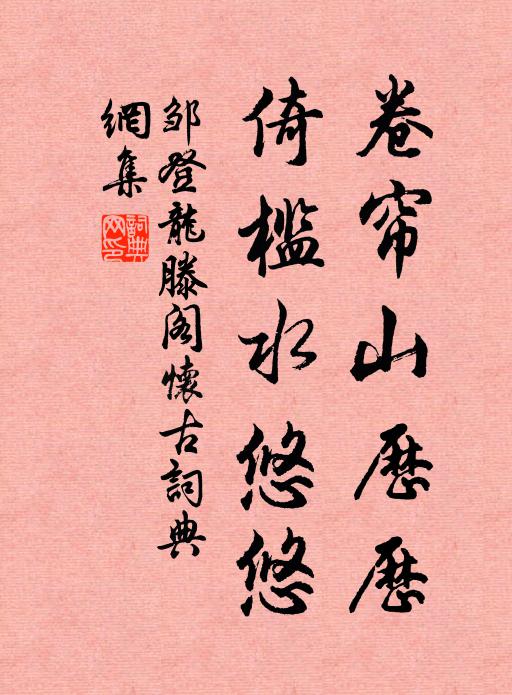 卷帘山歷歷
倚檻水悠悠
邹登龍滕阁懷古詞典
網集
詞典網印